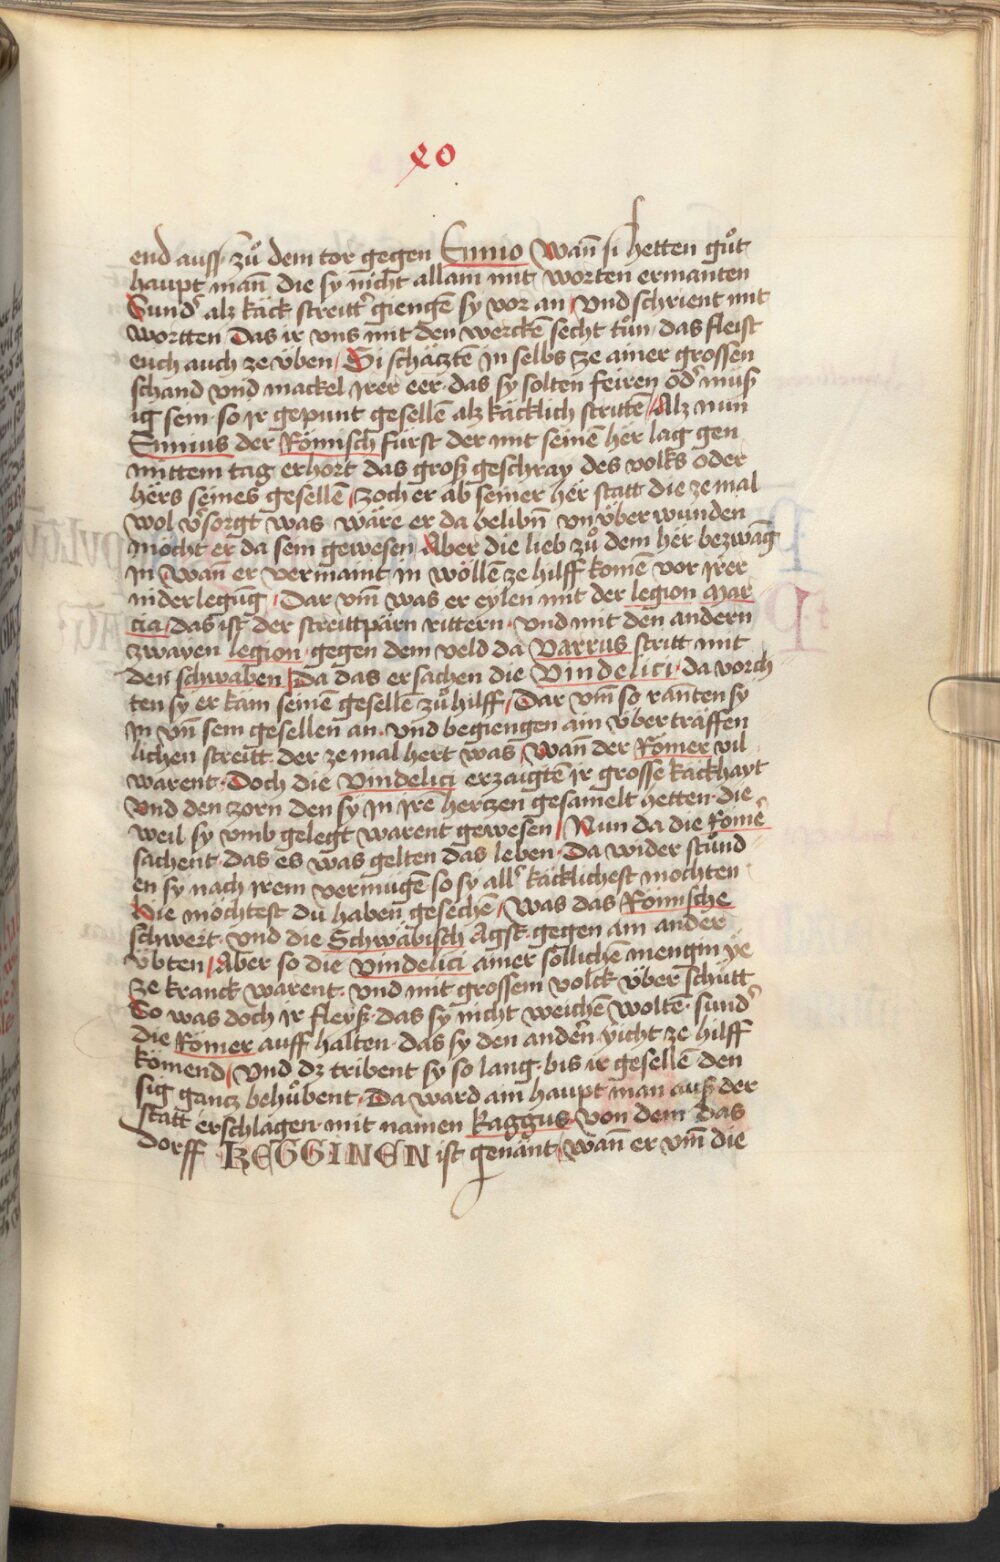 xo
end auss zů dem tor gegen Ennio wan̄ si hetten gůt
haupt man̄ die sy nicht allain mit worten ermanten
Sund᷒ alz käck streitt᷒ giengē sy vor an / Und schrient mit
wortten Das ir vns mit den werckē secht tůn das fleist
euch auch ze üben / Si schäcztē in selbs ze ainer grossen
schand vnd mackel irer eer das sy solten feiren od᷒ müß
ig sein so ir gepunt gesellē alz käcklich strittē / Alz nun
Ennius der Römisch fürst der mit seinē her lag gen
mittem tag erhort das groß geschray des volks oder
hers seines gesellē / zoch er ab seiner her statt die ze mal
wol v᷒sorgt was wäre er da belibn̄ vn̄ über wunden
mocht er da sein gewesen / Aber die lieb zů dem her bezwāg
in wan̄ er vermaint in wöllē ze hilff komē vor irer
nider legūg / Dar vm̄ was er eylen mit der legion Mar
cia / das ist der streittparn rittern · vnd mit den andern
zwayen legion gegen dem veld da Varrus stritt mit
den schwaben / Da das ersachen die Vindelici · da vorch
ten sy er käm seinē gesellē zů hilff / Dar vm̄ so ranten sy
in vn̄ sein gesellen an · vnd begiengen ain überträffen
lichen streitt · der ze mal hert was / wan̄ der Römer vil
warent · Doch die Vindelici erzaigtē ir grosse käckhayt
vnd den zorn den sy in irē hertzen gesamelt hetten · die
weil sy vmb gelegt warent gewesen / Nun da die Römē
sachent · das es was gelten das leben · Da wider stůnd
en sy nach irem vermügē so sy all᷒ käcklichest mochten
Hie möchtest du haben gesechē / was das Römische
schwert · vnd die Schwäbisch Agst · gegen ain ander
übten / Aber so die Vindelici ainer söllichen mengin ye
ze kranck warent · vnd mit grossem volck über schütt
So was doch ir fleiß · das sy nicht weichē woltē · sund᷒
die Römer auff halten · das sy den andern̄ yicht ze hilff
kömend / Vnd dz tribent sy so lang · bis ir gesellē den
sig gancz behůbent · Da ward ain haupt man auß der
statt erschlagen mit namen Kaggus · von dem das
dorff KEGGINEN ist genant / wan̄ er vm̄ die